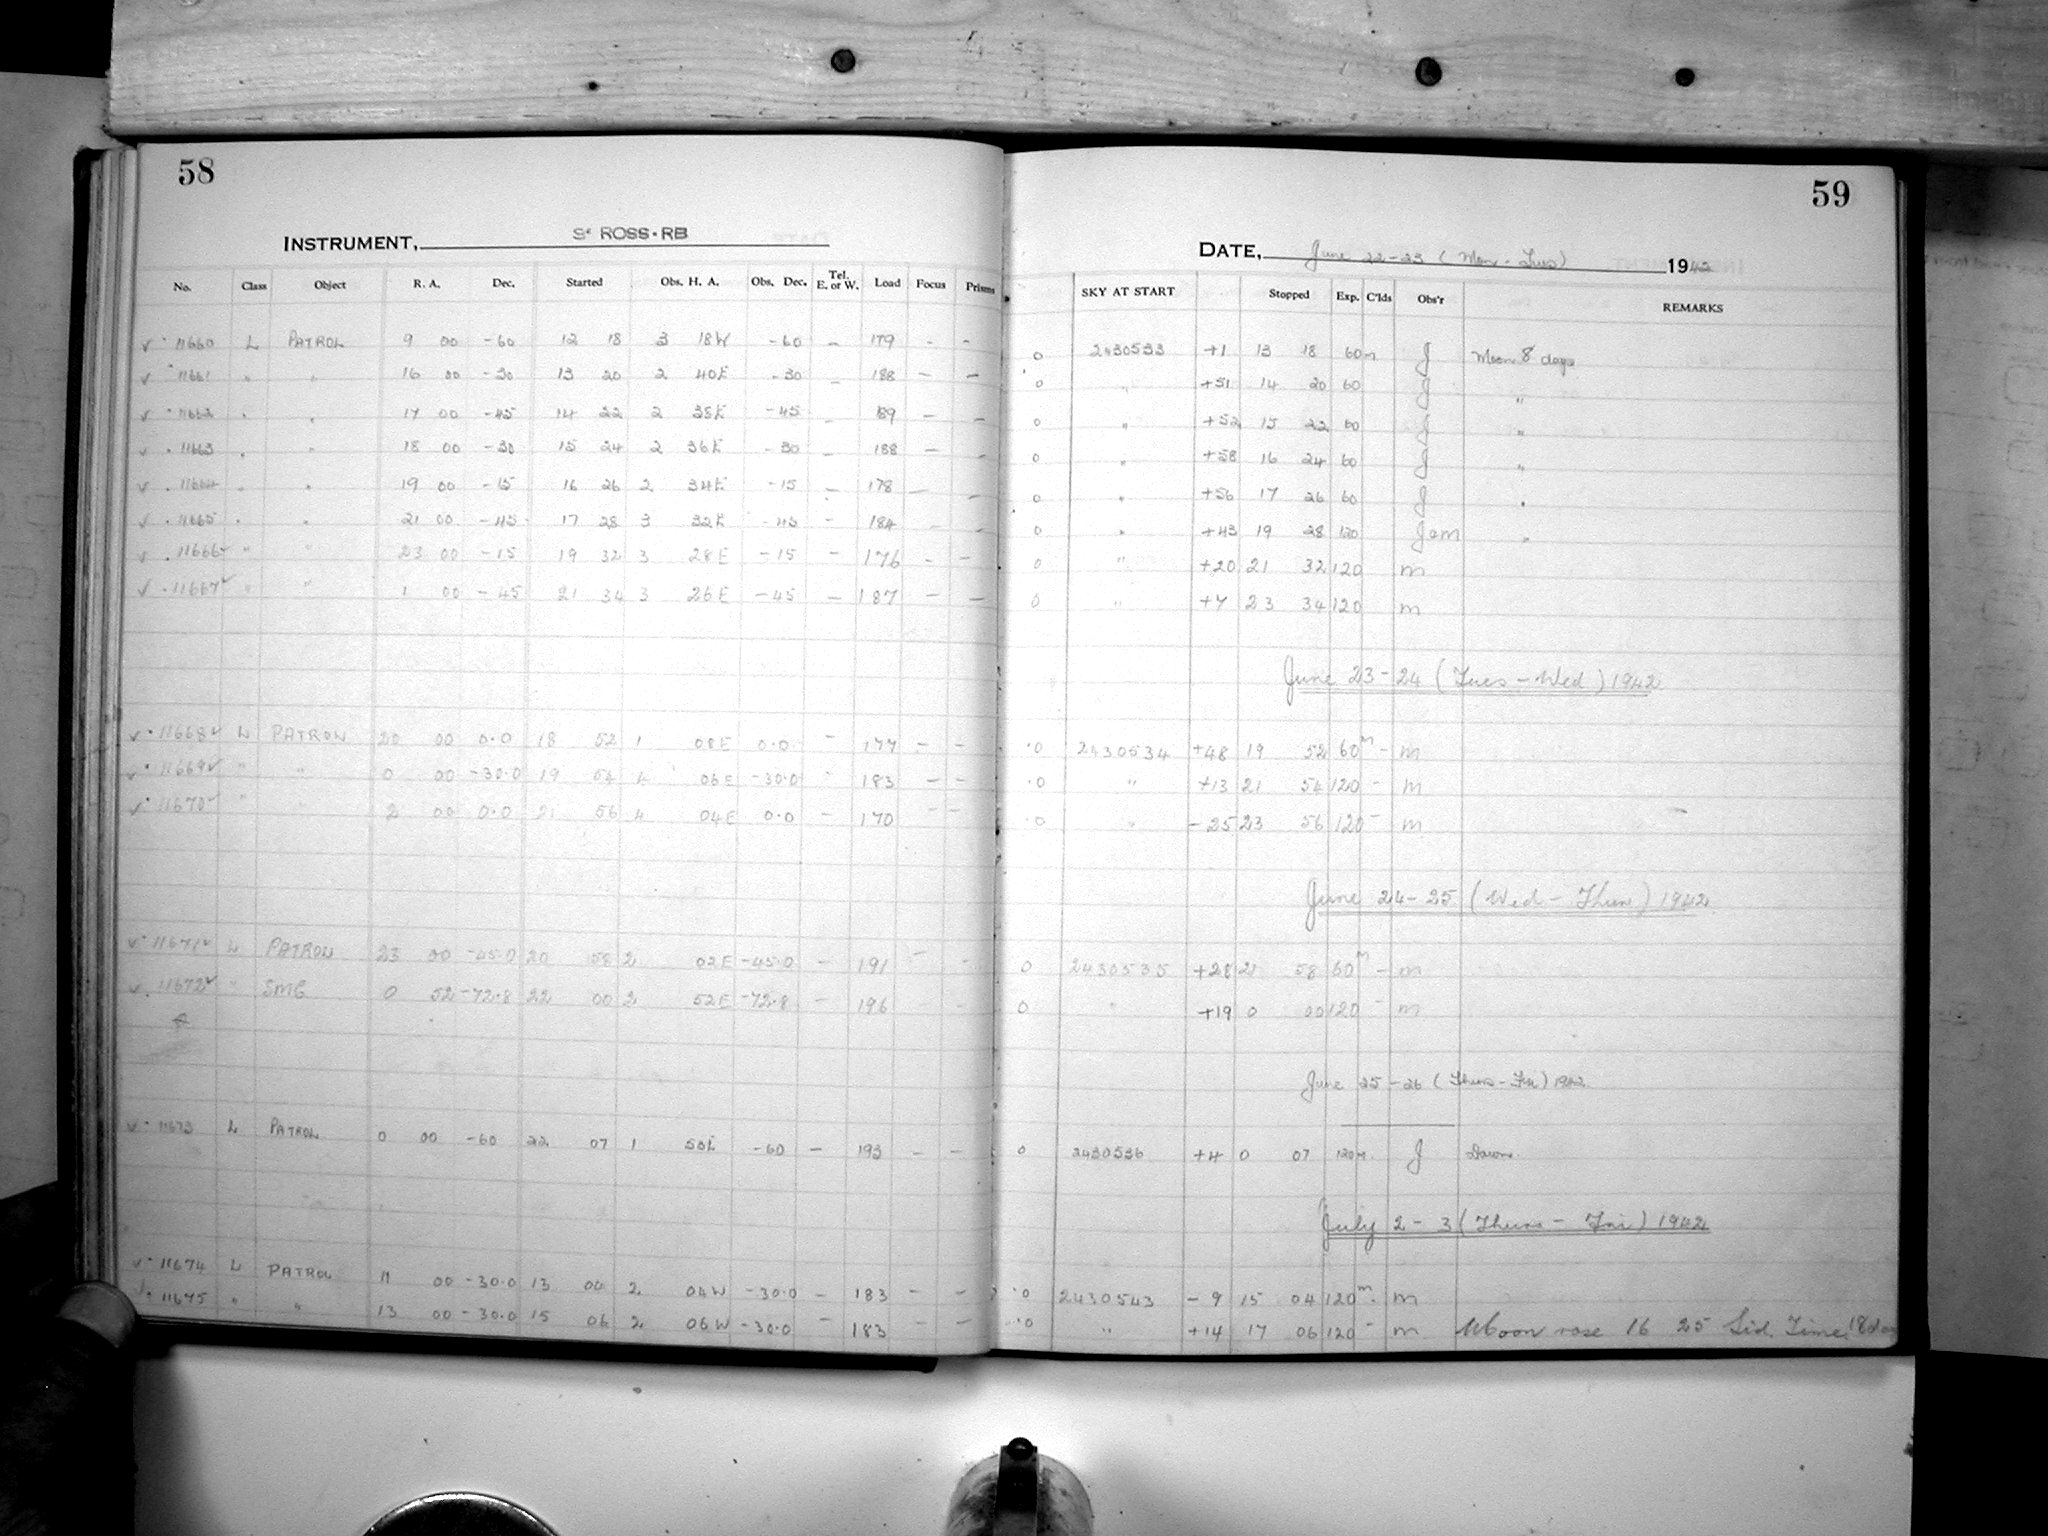 58
INSTRUMENT, Sᶜ ROSS-RB
No. Class Object R. A. Dec. Started Obs. H. A. Obs. Dec. Tel. E. or W. Load Focus Prisms
✓ · 11660 L PATROL 9 00 -60 12 18 3 18W -60 - 179 - -
✓ · 11661 " " 16 00 -30 13 20 2 40E -30 - 188 - -
✓ · 11662 " " 17 00 -45 14 22 2 38E -45 - 189 - -
✓ · 11663 " " 18 00 -30 15 24 2 36E -30 - 188 - -
✓ · 11664 " " 19 00 -15 16 26 2 34E -15 - 178 - -
✓ · 11665 " " 21 00 -45 17 28 3 32E -45 - 184 - -
✓ · 11666✓ " " 23 00 -15 19 32 3 28E -15 - 176 - -
✓ · 11667✓ " " 1 00 -45 21 34 3 26E -45 - 187 - -
✓ · 11668✓ L PATROL 20 00 0.0 18 52 1 08E 0.0 - 177 - -
✓ · 11669✓ " " 0 00 -30.0 19 54 4 06E -30.0 - 183 - -
✓ · 11670✓ " " 2 00 0.0 21 56 4 04E 0.0 - 170 - -
✓ · 11671✓ L PATROL 23 00 -45.0 20 58 2 02E -45.0 - 191 - -
✓ · 11672✓ " SMC 0 52 -72.8 22 00 2 52E -72.8 - 196 - -
✓ · 11673 L PATROL 0 00 -60 22 07 1 50E -60 - 193 - -
✓ · 11674 L PATROL 11 00 -30.0 13 04 2 04W -30.0 - 183 - -
11675 " " 13 00 -30.0 15 06 2 06W -30.0 - 183 - -
59
DATE, June 22-23 (Mon - Tues) 1942
SKY AT START Stopped Exp. C'lds Obs'r REMARKS
0 2430533 +1 13 18 60m J Moon 8 days
0 " +51 14 20 60 J "
0 " +52 15 22 60 J "
0 " +58 16 24 60 J "
0 " +56 17 26 60 J "
0 " +43 19 28 120 J&m "
0 " +20 21 32 120 m
0 " +7 23 34 120 m
June 23-24 (Tues - Wed) 1942
·0 2430534 +48 19 52 60ᵐ - m
·0 " +13 21 54 120 - m
·0 " -25 23 56 120 - m
June 24-25 (Wed - Thurs) 1942
0 2430535 +28 21 58 60ᵐ - m
0 " +19 0 00 120 - m
June 25-26 (Thurs - Fri) 1942
0 2430536 +4 0 07 120m. J Dawn.
July 2-3 (Thurs - Fri) 1942
·0 2430543 -9 15 04 120ᵐ · m
·0 " +14 17 06 120 - m Moon rose 16 25 Sid. Time. 18 da